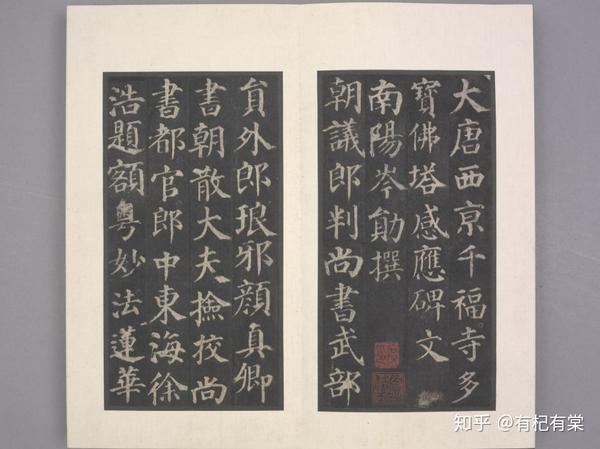 大唐西京千福寺多
寶佛塔感應碑文
南陽岑勛撰
朝議郎判尚書武部
貟外郎琅邪顏真卿
書朝散大夫撿挍尚
書都官郎中東海徐
浩題額粵妙法蓮華
知乎 @有杞有棠